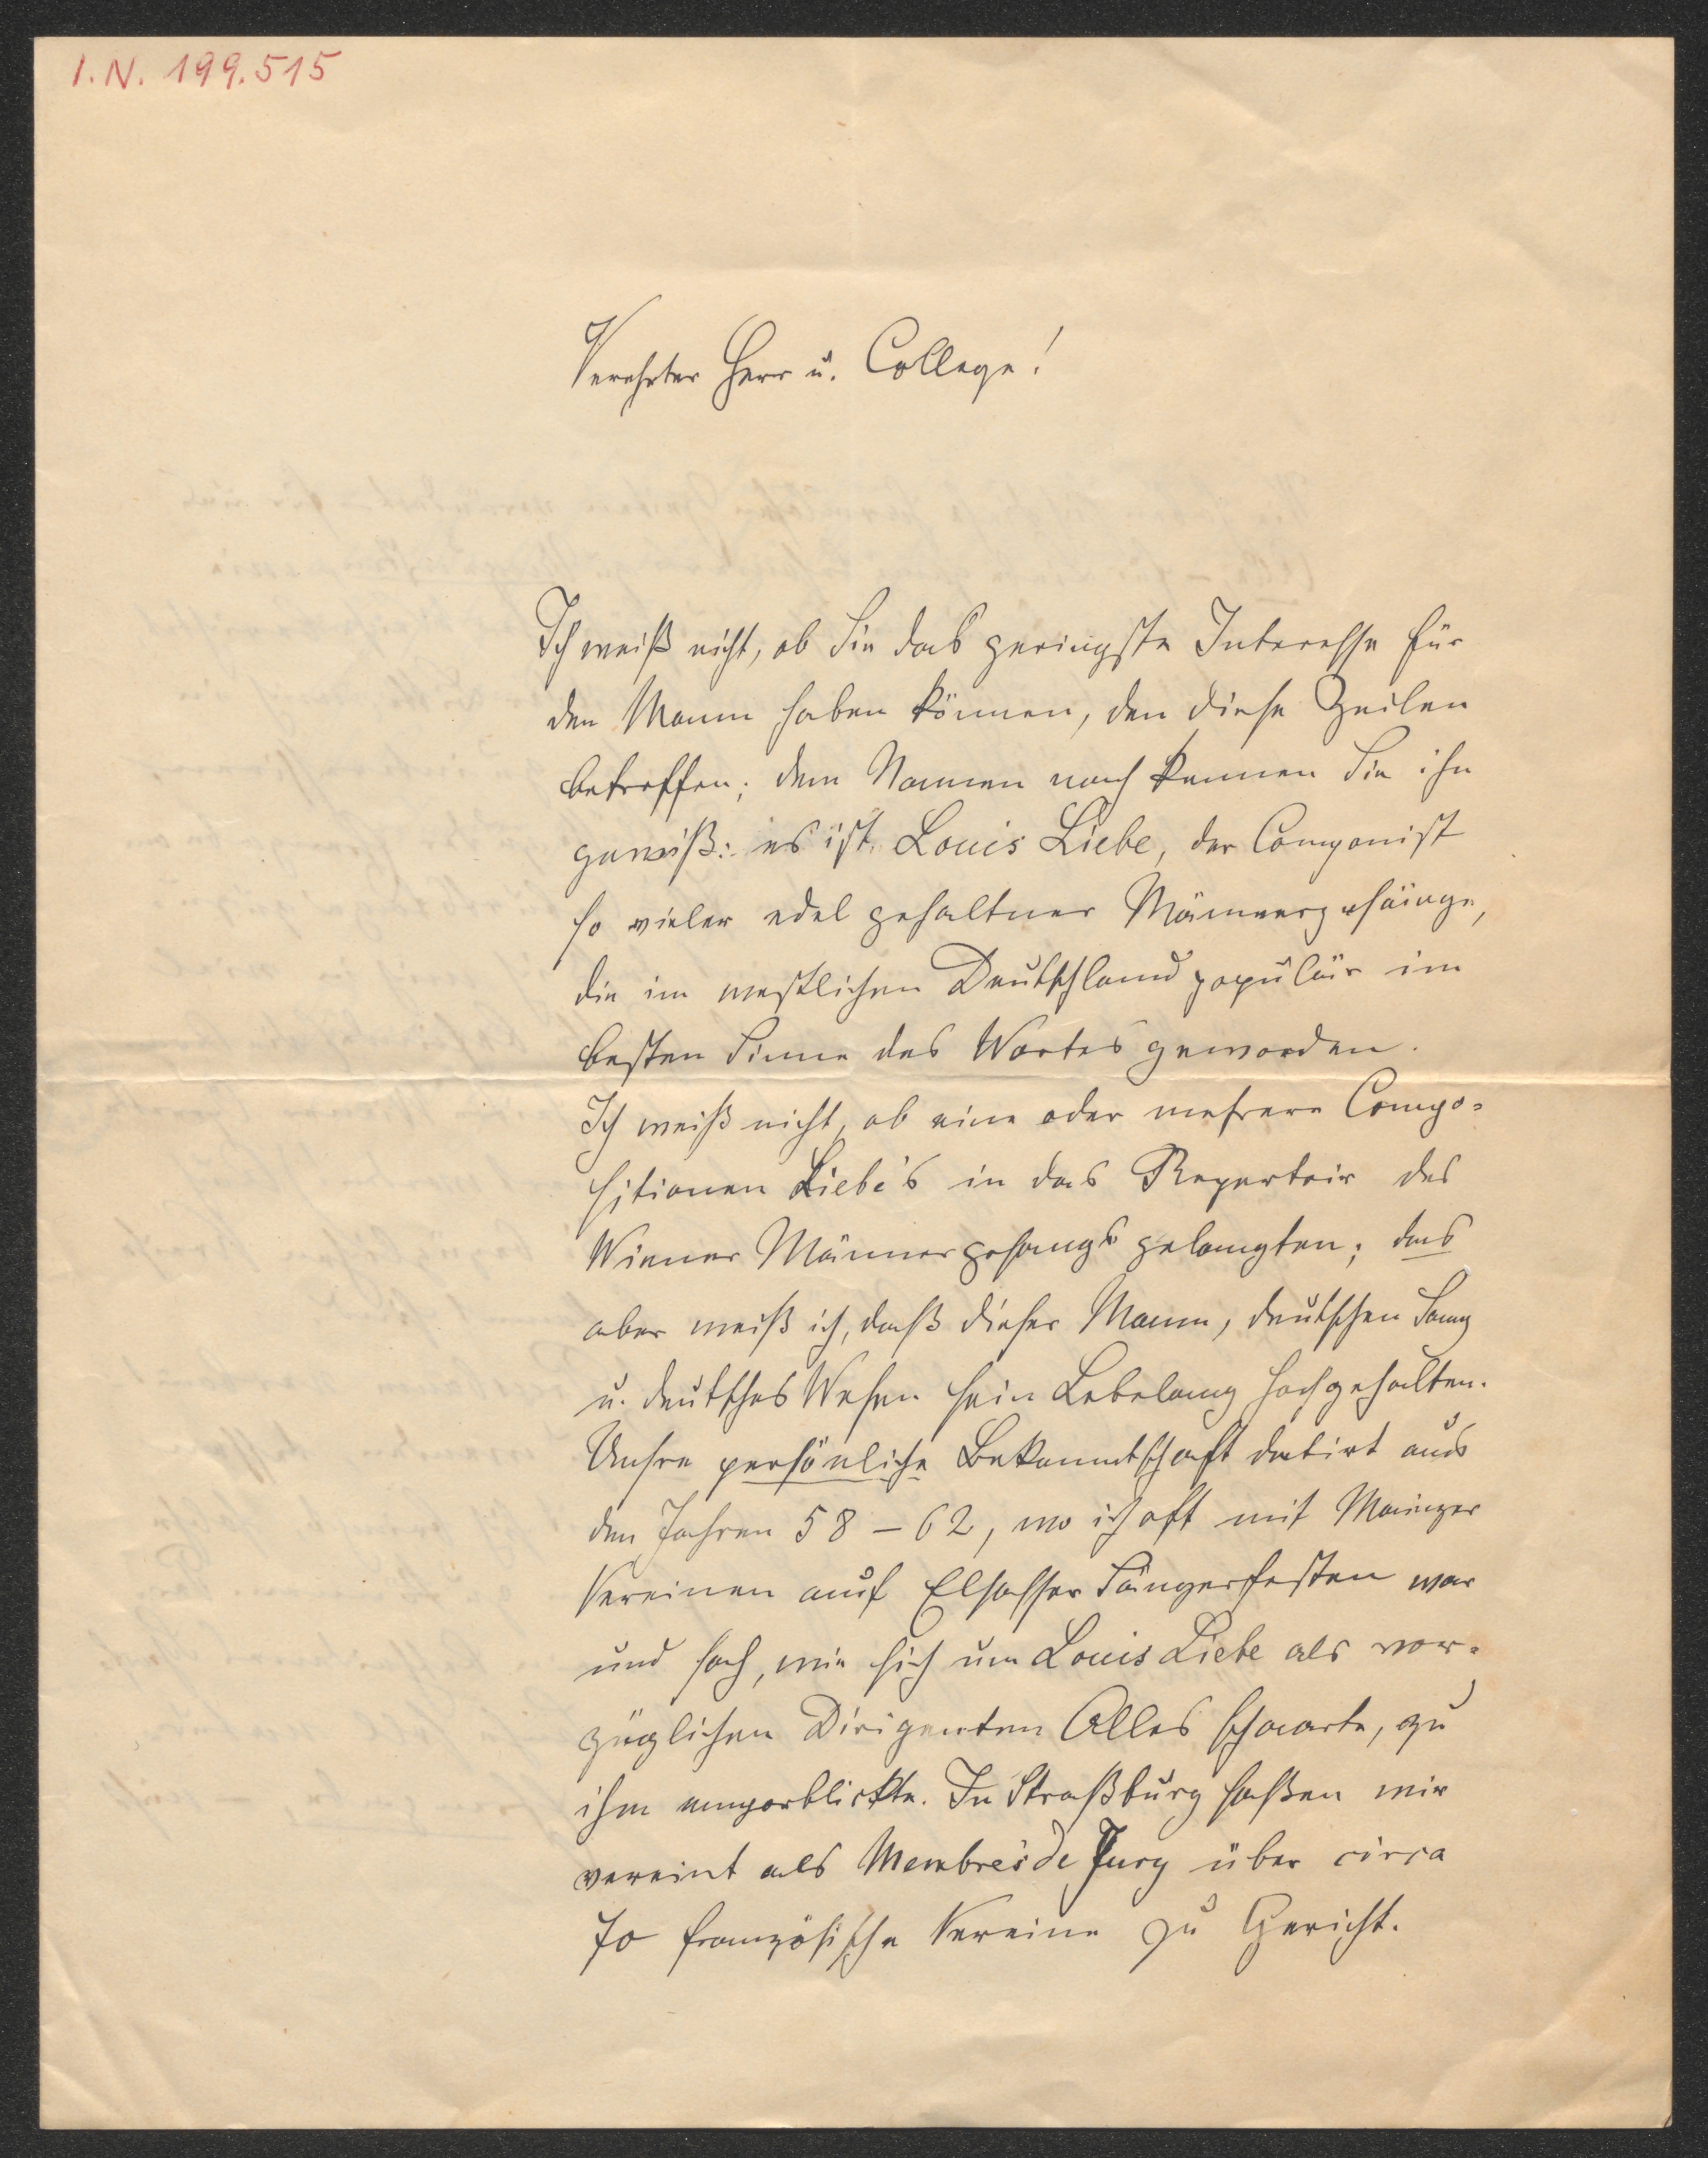 I.N. 199.515
Verehrter Herr u. College!
Ich weiß nicht, ob Sie das geringste Interesse für
den Mann haben können, den diese Zeilen
betreffen; dem Namen nach kennen Sie ihn
gewiß: es ist Louis Liebe, der Componist
so vieler edel gehaltner Männergesänge,
die im westlichen Deutschland populär im
besten Sinne des Wortes geworden.
Ich weiß nicht, ob eine oder mehrere Compo=
sitionen Liebe's in das Repertoir des
Wiener Männergesangs gelangten; das
aber weiß ich, daß dieser Mann, deutschen Sang
u. deutsches Wesen sein Lebelang hochgehalten.
Unsre persönliche Bekanntschaft datirt aus
den Jahren 58 – 62, wo ich oft mit Mainzer
Vereinen auf Elsasser Sängerfesten war
und sah, wie sich um Louis Liebe als vor=
züglichen Dirigenten Alles schaarte, zu
ihm emporblickte. In Straßburg saßen wir
vereint als Membres de Jury über circa
70 französische Vereine zu Gericht.